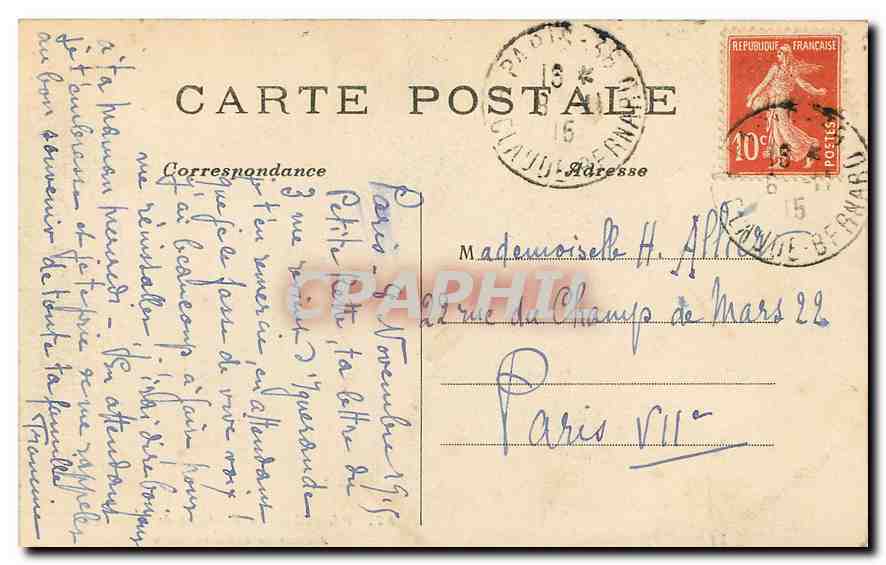 CARTE POSTALE
Correspondance
Adresse
PARIS-38
13 *
8 11
15
CLAUDE-BERNARD
REPUBLIQUE FRANÇAISE
10c
POSTES
13 *
8 11
15
CLAUDE-BERNARD
Mademoiselle H.
22 rue du Champ de Mars 22
Paris VIIe
Paris - 8 Novembre 1915
Petite ta lettre du
3 me vient d'Iguerande
je t'en remercie, en attendant
que je le fasse de vive voix!
J'ai beaucoup à faire pour
me réinstaller, j'irai dire bonjour
à ta maman mercredi - En attendant
je t'embrasse et je te prie de me rappeler
au bon souvenir de toute ta famille
Francine
CPAPHIL